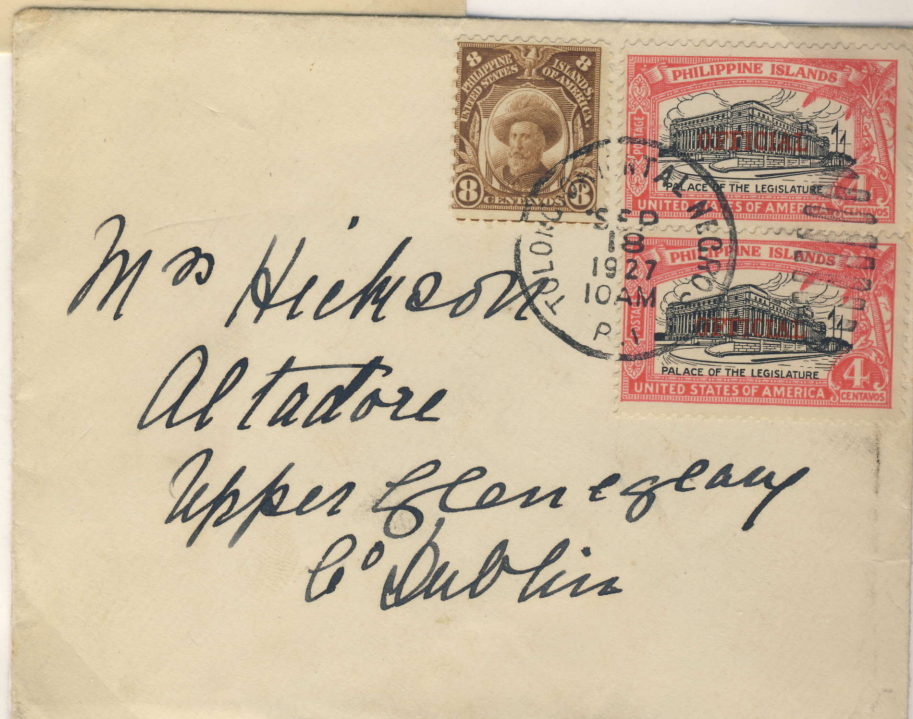 8 8
PHILIPPINE ISLANDS.
UNITED STATES OF AMERICA.
8 8
CENTAVOS
PHILIPPINE ISLANDS
POSTAGE
OFFICIAL
PALACE OF THE LEGISLATURE
4
UNITED STATES OF AMERICA
CENTAVOS
PHILIPPINE ISLANDS
POSTAGE
OFFICIAL
PALACE OF THE LEGISLATURE
4
UNITED STATES OF AMERICA
CENTAVOS
ORIENTAL NEGROS
SEP
18
1927
10AM
P.I.
Mrs Hickson
Altadore
Upper Glenegeary
Co Dublin